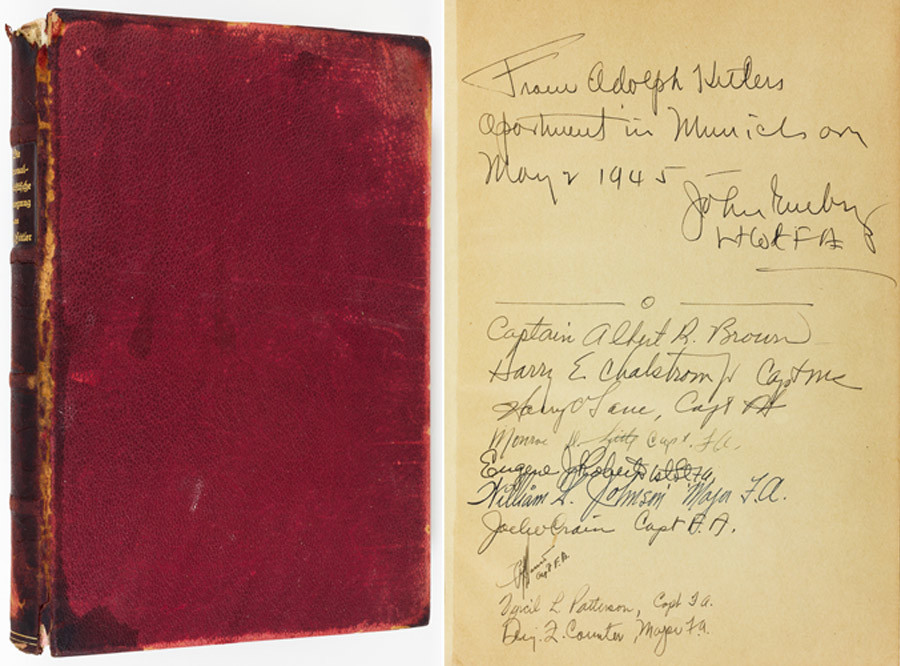 Die
Hitler
From Adolph Hitlers
apartment in Munich on
May 2 1945
John
Lt Col F A
Captain Albert R. Brown
Harry E. Chalstrom Jr Capt MC
Harry O Lane, Capt FA
Monroe Capt. F.A.
Eugene J Roberts 1st Lt. F.A.
William L. Johnson Major F.A.
Crain Capt F.A.
Capt F.A.
Virgil L Patterson, Capt F.A.
Benj. F. Counter, Major F.A.